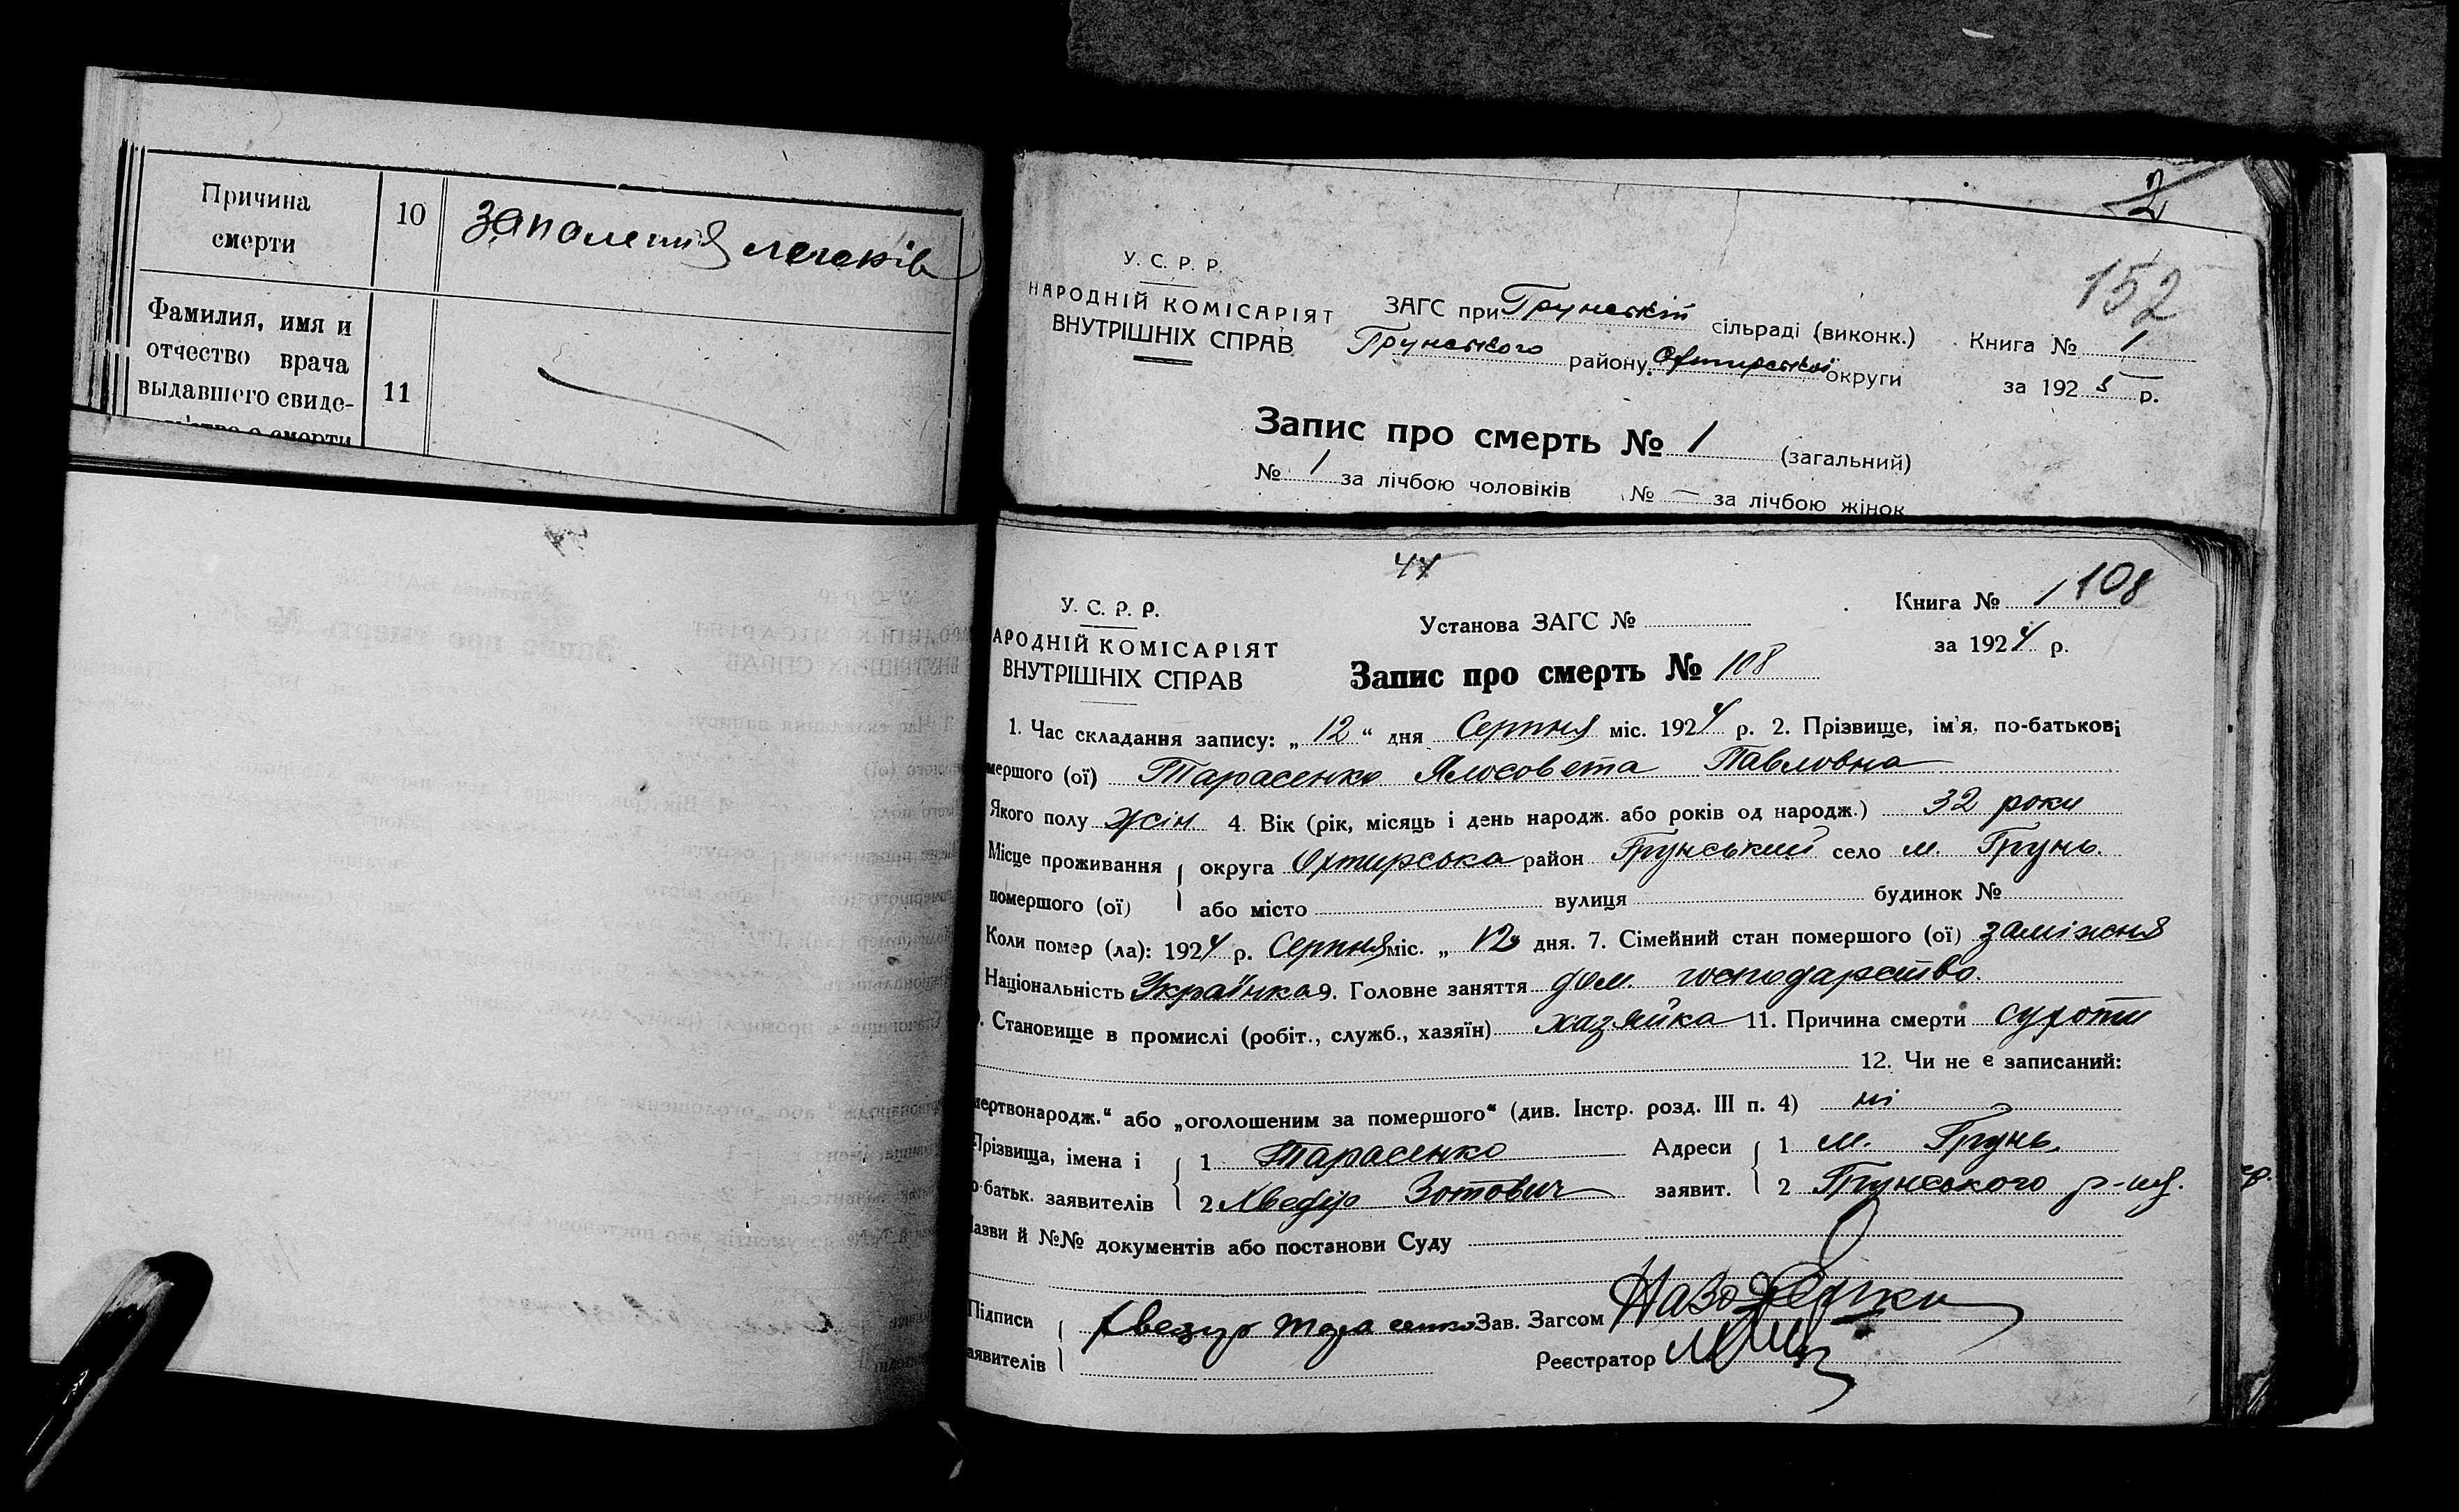 Причина
смерти
10
запалення легенів
Фамилия, имя и
отчество врача
выдавшего свиде-
11
2
152
У. С. Р. Р.
НАРОДНІЙ КОМІСАРІЯТ
ВНУТРІШНІХ СПРАВ
ЗАГС при Грунській сільраді (виконк.)
Грунського району Охтирської округи
Книга № 1
за 1925 р.
Запис про смерть № 1 (загальний)
№ 1 за лічбою чоловіків № — за лічбою жінок
44
У. С. Р. Р.
АРОДНІЙ КОМІСАРІЯТ
ВНУТРІШНІХ СПРАВ
Установа ЗАГС №
Книга № 1 108
за 1924 р.
Запис про смерть № 108
1. Час складання запису: „ 12 “ дня Серпня міс. 1924 р. 2. Прізвище, ім'я, по-батькові
мершого (ої) Тарасенко Ялосовета Павловна
Якого полу жін. 4. Вік (рік, місяць і день народж. або років од народж.) 32 роки
Місце проживання округа Охтирська район Грунський село м. Грунь.
помершого (ої) або місто вулиця будинок №
Коли помер (ла): 1924 р. Серпня міс. „ 12 дня. 7. Сімейний стан помершого (ої) заміжня
Національність Українка 9. Головне заняття дом. господарство.
. Становище в промислі (робіт., служб., хазяїн) хазяйка 11. Причина смерти сухоти
12. Чи не є записаний:
мертвонародж.“ або „оголошеним за помершого“ (див. Інстр. розд. III п. 4) ні
Прізвища, імена і 1 Тарасенко Адреси 1 м. Грунь.
о-батьк. заявителів 2 Хведір Зотович заявит. 2 Грунського р-ну.
азви й №№ документів або постанови Суду
Підписи Хведир Тарасенко Зав. Загсом
аявителів Реєстратор